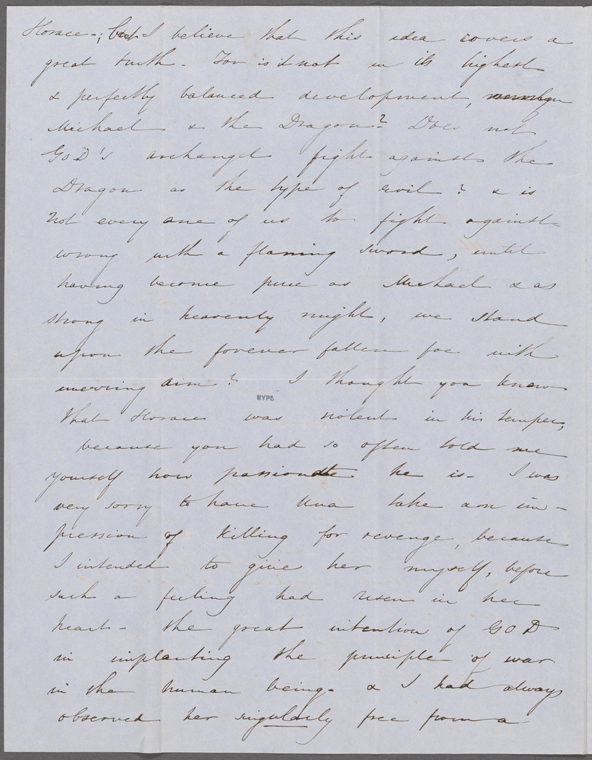 Horace-; but I believe that this idea covers a
great truth. For is it not in its highest
& perfectly balanced development,
Michael & the Dragon? Does not
GOD's archangel fight against the
Dragon as the type of evil? & is
not every one of us to fight against
wrong with a flaming sword, until
having become pure as Michael & as
strong in heavenly might, we stand
upon the forever fallen foe with
unerring aim? I thought you knew
NYPL
that Horace was violent in his temper,
because you had so often told me
yourself how passionate he is- I was
very sorry to have Una take an im-
pression of killing for revenge, because
I intended to give her myself, before
such a feeling had risen in her
heart- the great intention of GOD
in implanting the principle of war
in the human being. & I had always
observed her singularly free from a